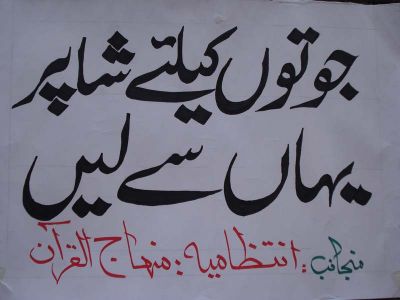 جوتوں کیلئے شاپر
یہاں سے لیں
منجانب: انتظامیہ: منہاج القرآن